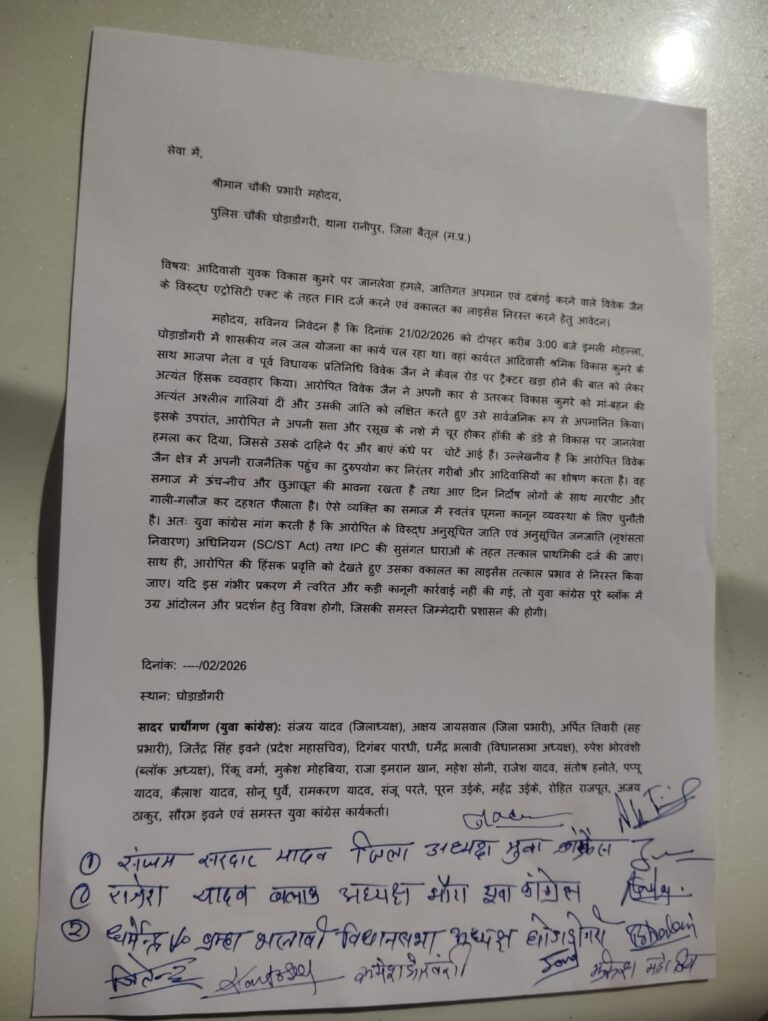 सेवा में,
श्रीमान चौकी प्रभारी महोदय,
पुलिस चौकी घोड़ाडोंगरी, थाना रानीपुर, जिला बैतूल (म.प्र.)
विषय: आदिवासी युवक विकास कुमरे पर जानलेवा हमले, जातिगत अपमान एवं दबंगई करने वाले विवेक जैन
के विरुद्ध एट्रोसिटी एक्ट के तहत FIR दर्ज करने एवं वकालत का लाइसेंस निरस्त करने हेतु आवेदन।
महोदय, सविनय निवेदन है कि दिनांक 21/02/2026 को दोपहर करीब 3:00 बजे इमली मोहल्ला,
घोड़ाडोंगरी में शासकीय नल जल योजना का कार्य चल रहा था। वहां कार्यरत आदिवासी श्रमिक विकास कुमरे के
साथ भाजपा नेता व पूर्व विधायक प्रतिनिधि विवेक जैन ने केवल रोड पर ट्रैक्टर खड़ा होने की बात को लेकर
अत्यंत हिंसक व्यवहार किया। आरोपित विवेक जैन ने अपनी कार से उतरकर विकास कुमरे को मां-बहन की
अत्यंत अश्लील गालियां दीं और उसकी जाति को लक्षित करते हुए उसे सार्वजनिक रूप से अपमानित किया।
इसके उपरांत, आरोपित ने अपनी सत्ता और रसूख के नशे में चूर होकर हॉकी के डंडे से विकास पर जानलेवा
हमला कर दिया, जिससे उसके दाहिने पैर और बाएं कंधे पर चोटें आई हैं। उल्लेखनीय है कि आरोपित विवेक
जैन क्षेत्र में अपनी राजनैतिक पहुंच का दुरुपयोग कर निरंतर गरीबों और आदिवासियों का शोषण करता है। वह
समाज में ऊंच-नीच और छुआछूत की भावना रखता है तथा आए दिन निर्दोष लोगों के साथ मारपीट और
गाली-गलौज कर दहशत फैलाता है। ऐसे व्यक्ति का समाज में स्वतंत्र घूमना कानून व्यवस्था के लिए चुनौती
है। अतः युवा कांग्रेस मांग करती है कि आरोपित के विरुद्ध अनुसूचित जाति एवं अनुसूचित जनजाति (नृशंसता
निवारण) अधिनियम (SC/ST Act) तथा IPC की सुसंगत धाराओं के तहत तत्काल प्राथमिकी दर्ज की जाए।
साथ ही, आरोपित की हिंसक प्रवृति को देखते हुए उसका वकालत का लाइसेंस तत्काल प्रभाव से निरस्त किया
जाए। यदि इस गंभीर प्रकरण में त्वरित और कड़ी कानूनी कार्रवाई नहीं की गई, तो युवा कांग्रेस पूरे ब्लॉक में
उग्र आंदोलन और प्रदर्शन हेतु विवश होगी, जिसकी समस्त जिम्मेदारी प्रशासन की होगी।
दिनांक: ----/02/2026
स्थान: घोड़ाडोंगरी
सादर प्रार्थीगण (युवा कांग्रेस): संजय यादव (जिलाध्यक्ष), अक्षय जायसवाल (जिला प्रभारी), अर्पित तिवारी (सह
प्रभारी), जितेंद्र सिंह इवने (प्रदेश महासचिव), दिगंबर पारधी, धर्मेंद्र भलावी (विधानसभा अध्यक्ष), रुपेश भोरवंशी
(ब्लॉक अध्यक्ष), रिंकू वर्मा, मुकेश मोहबिया, राजा इमरान खान, महेश सोनी, राजेश यादव, संतोष हनोते, पप्पू
यादव, कैलाश यादव, सोनू धुर्वे, रामकरण यादव, संजू परते, पूरन उईके, महेंद्र उईके, रोहित राजपूत, अजय
ठाकुर, सौरभ इवने एवं समस्त युवा कांग्रेस कार्यकर्ता।
① यादव जिला अध्यक्ष युवा
राजेश यादव ब्लाक अध्यक्ष युवा कांग्रेस
② धर्मेन्द्र भलावी विधानसभा अध्यक्ष
जितेन्द्र